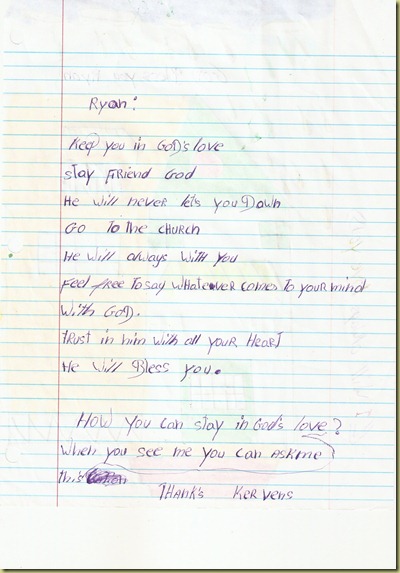 Ryan:
Keep you in God's love
stay Friend God
He will never lets you Down
Go to the church
He will always with you
Feel free to say whatever comes to your mind
with God.
trust in him with all your Heart
He will Bless you.
How you can stay in God's love?
When you see me you can ask me
this
Thank's Kervens